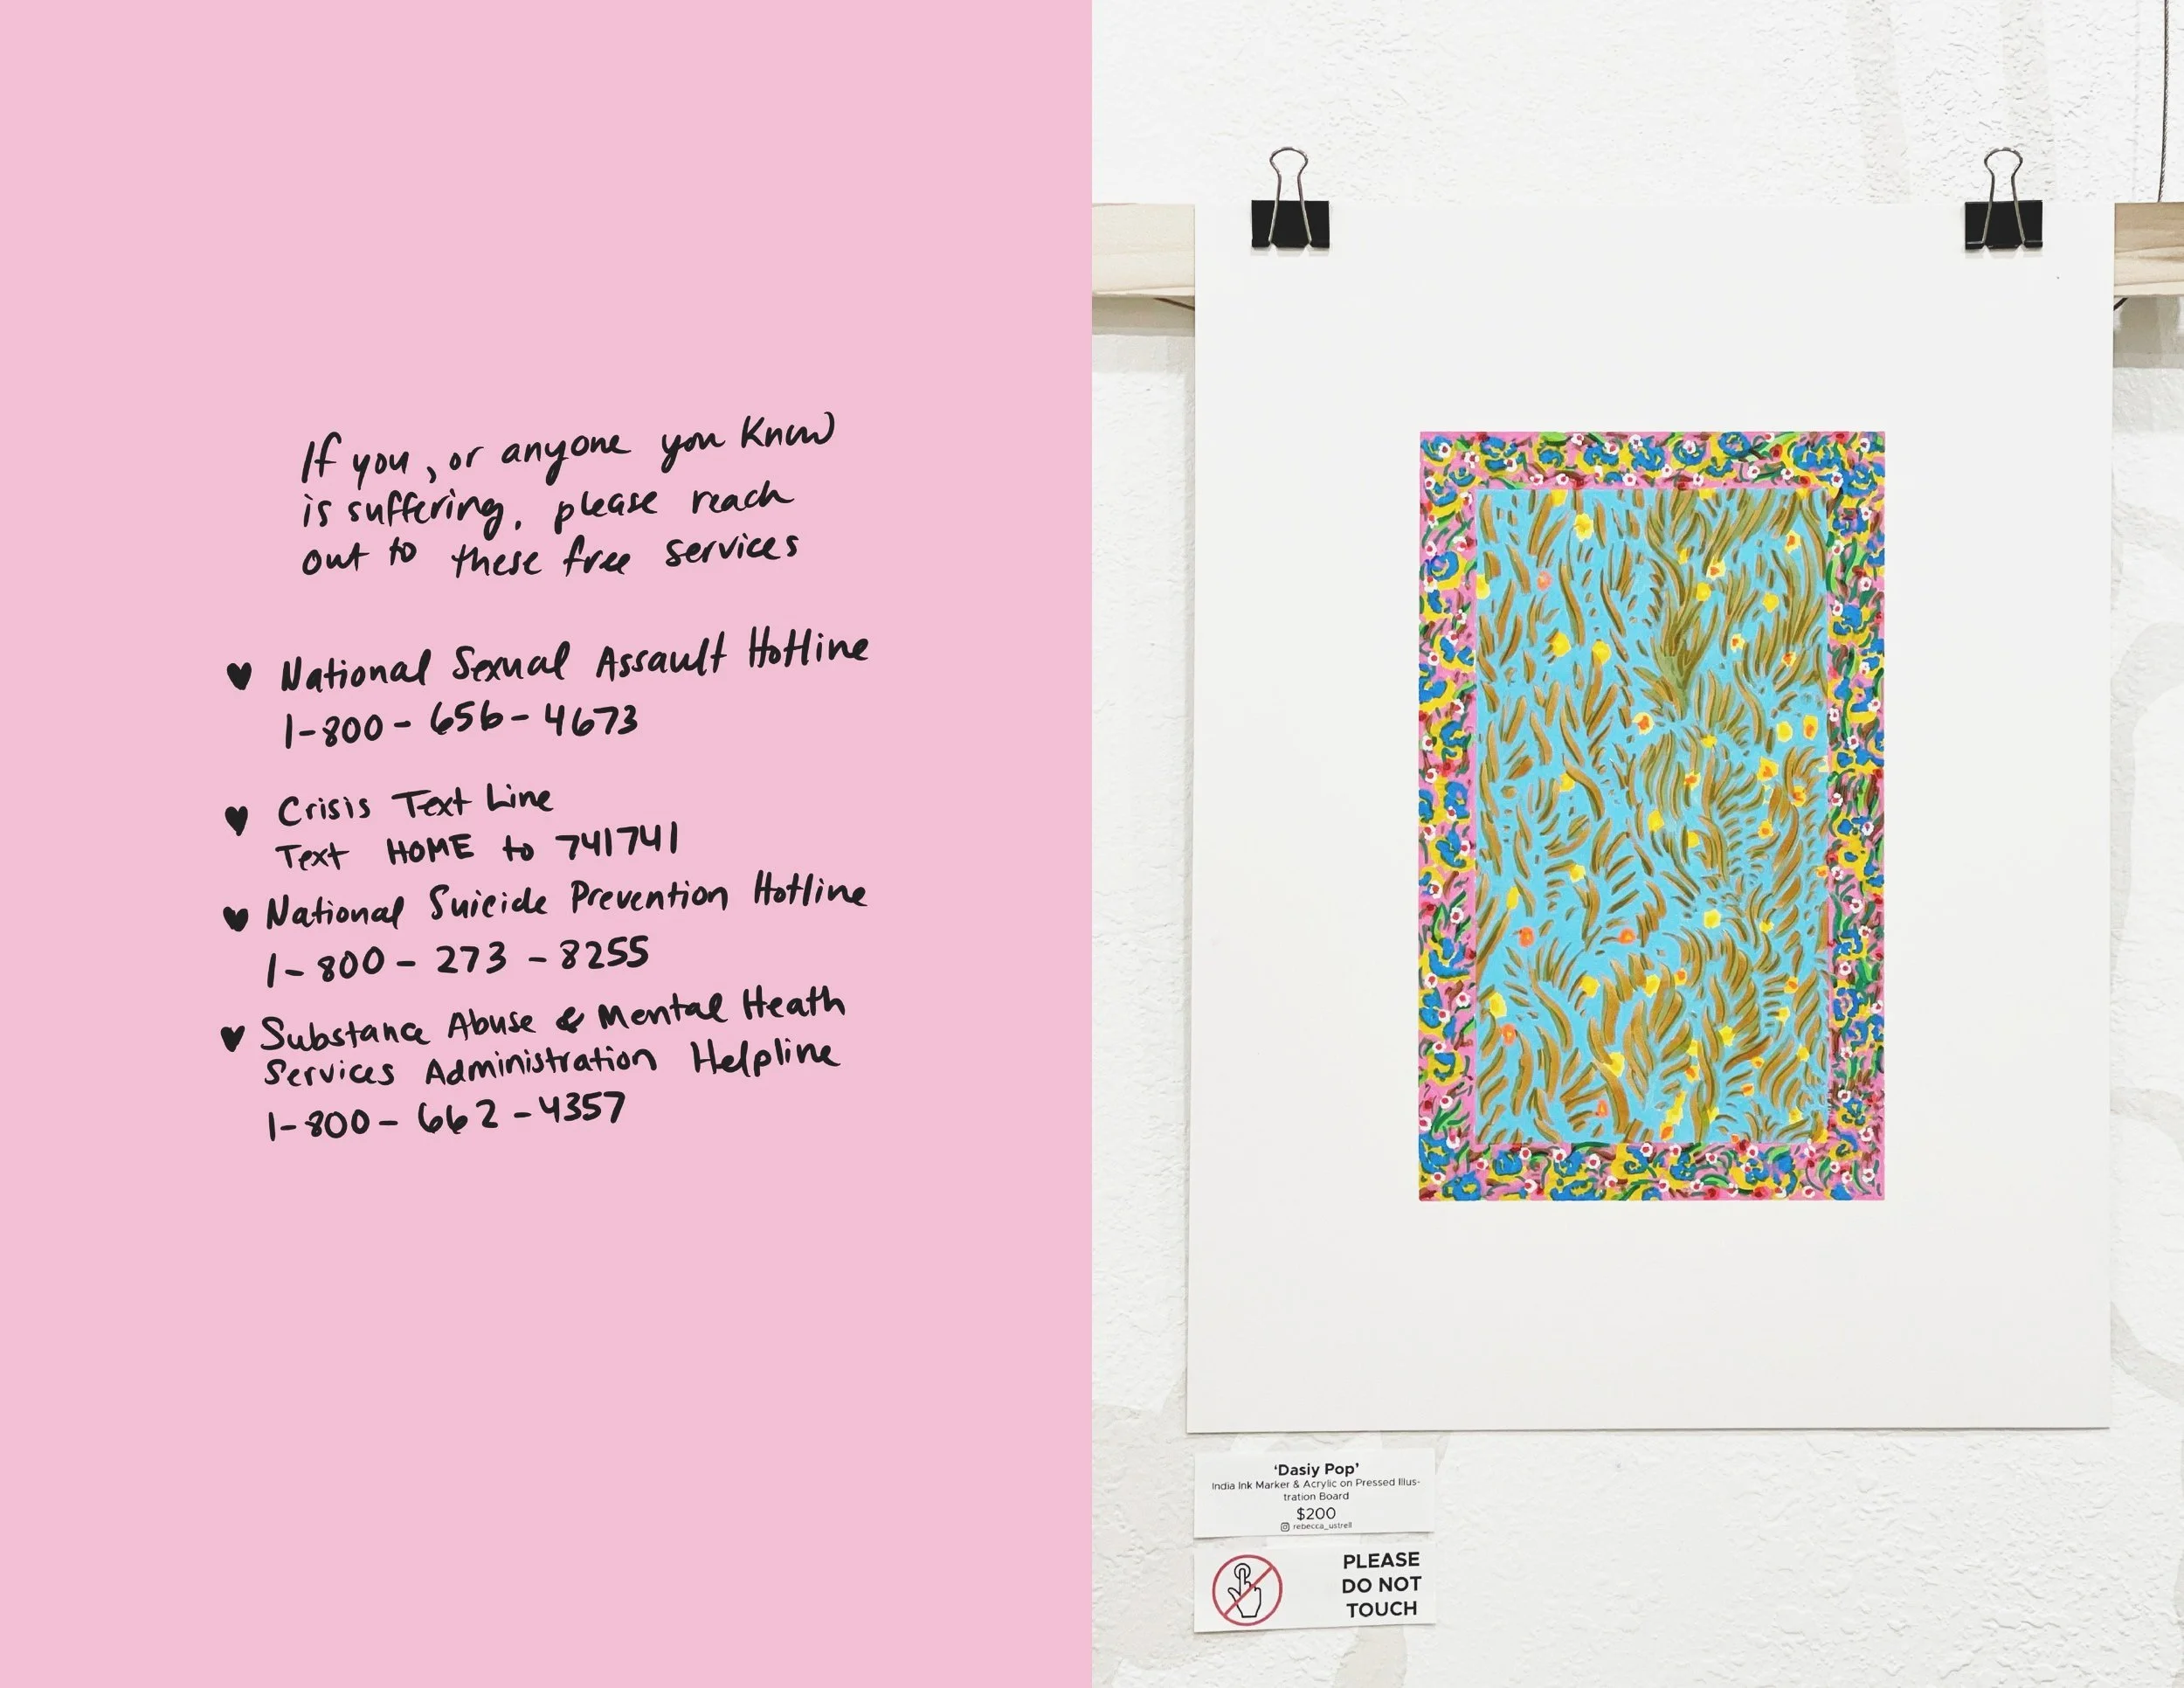 If you, or anyone you know
is suffering, please reach
out to these free services
♥ National Sexual Assault Hotline
1-800-656-4673
♥ Crisis Text Line
Text HOME to 741741
♥ National Suicide Prevention Hotline
1-800-273-8255
♥ Substance Abuse & Mental Heath
Services Administration Helpline
1-800-662-4357
‘Dasiy Pop’
India Ink Marker & Acrylic on Pressed Illus-
tration Board
$200
rebecca_ustrell
PLEASE
DO NOT
TOUCH